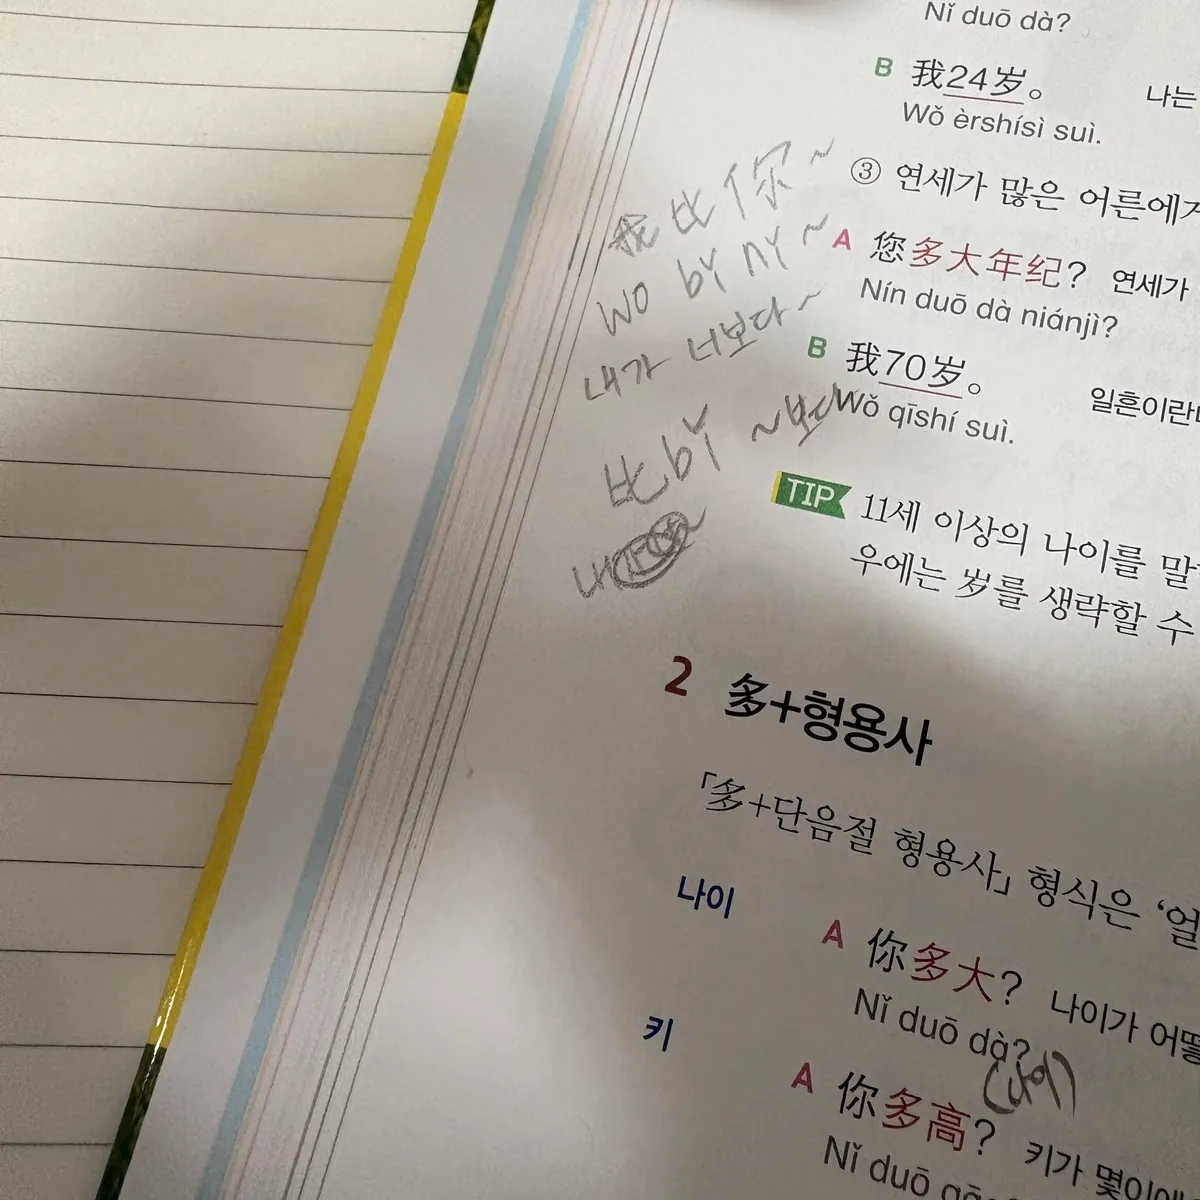 Nǐ duō dà?
B 我24岁。 나는
Wǒ èrshísì suì.
③ 연세가 많은 어른에게
A 您多大年纪? 연세가
Nín duō dà niánjì?
B 我70岁。 일흔이란다
Wǒ qīshí suì.
TIP 11세 이상의 나이를 말
우에는 岁를 생략할 수
我比你~
wǒ bǐ nǐ~
내가 너보다~
比 bǐ ~보다
2 多+형용사
「多+단음절 형용사」 형식은 ‘얼
나이
A 你多大? 나이가 어떻
Nǐ duō dà?
키
A 你多高? 키가 몇이
Nǐ duō